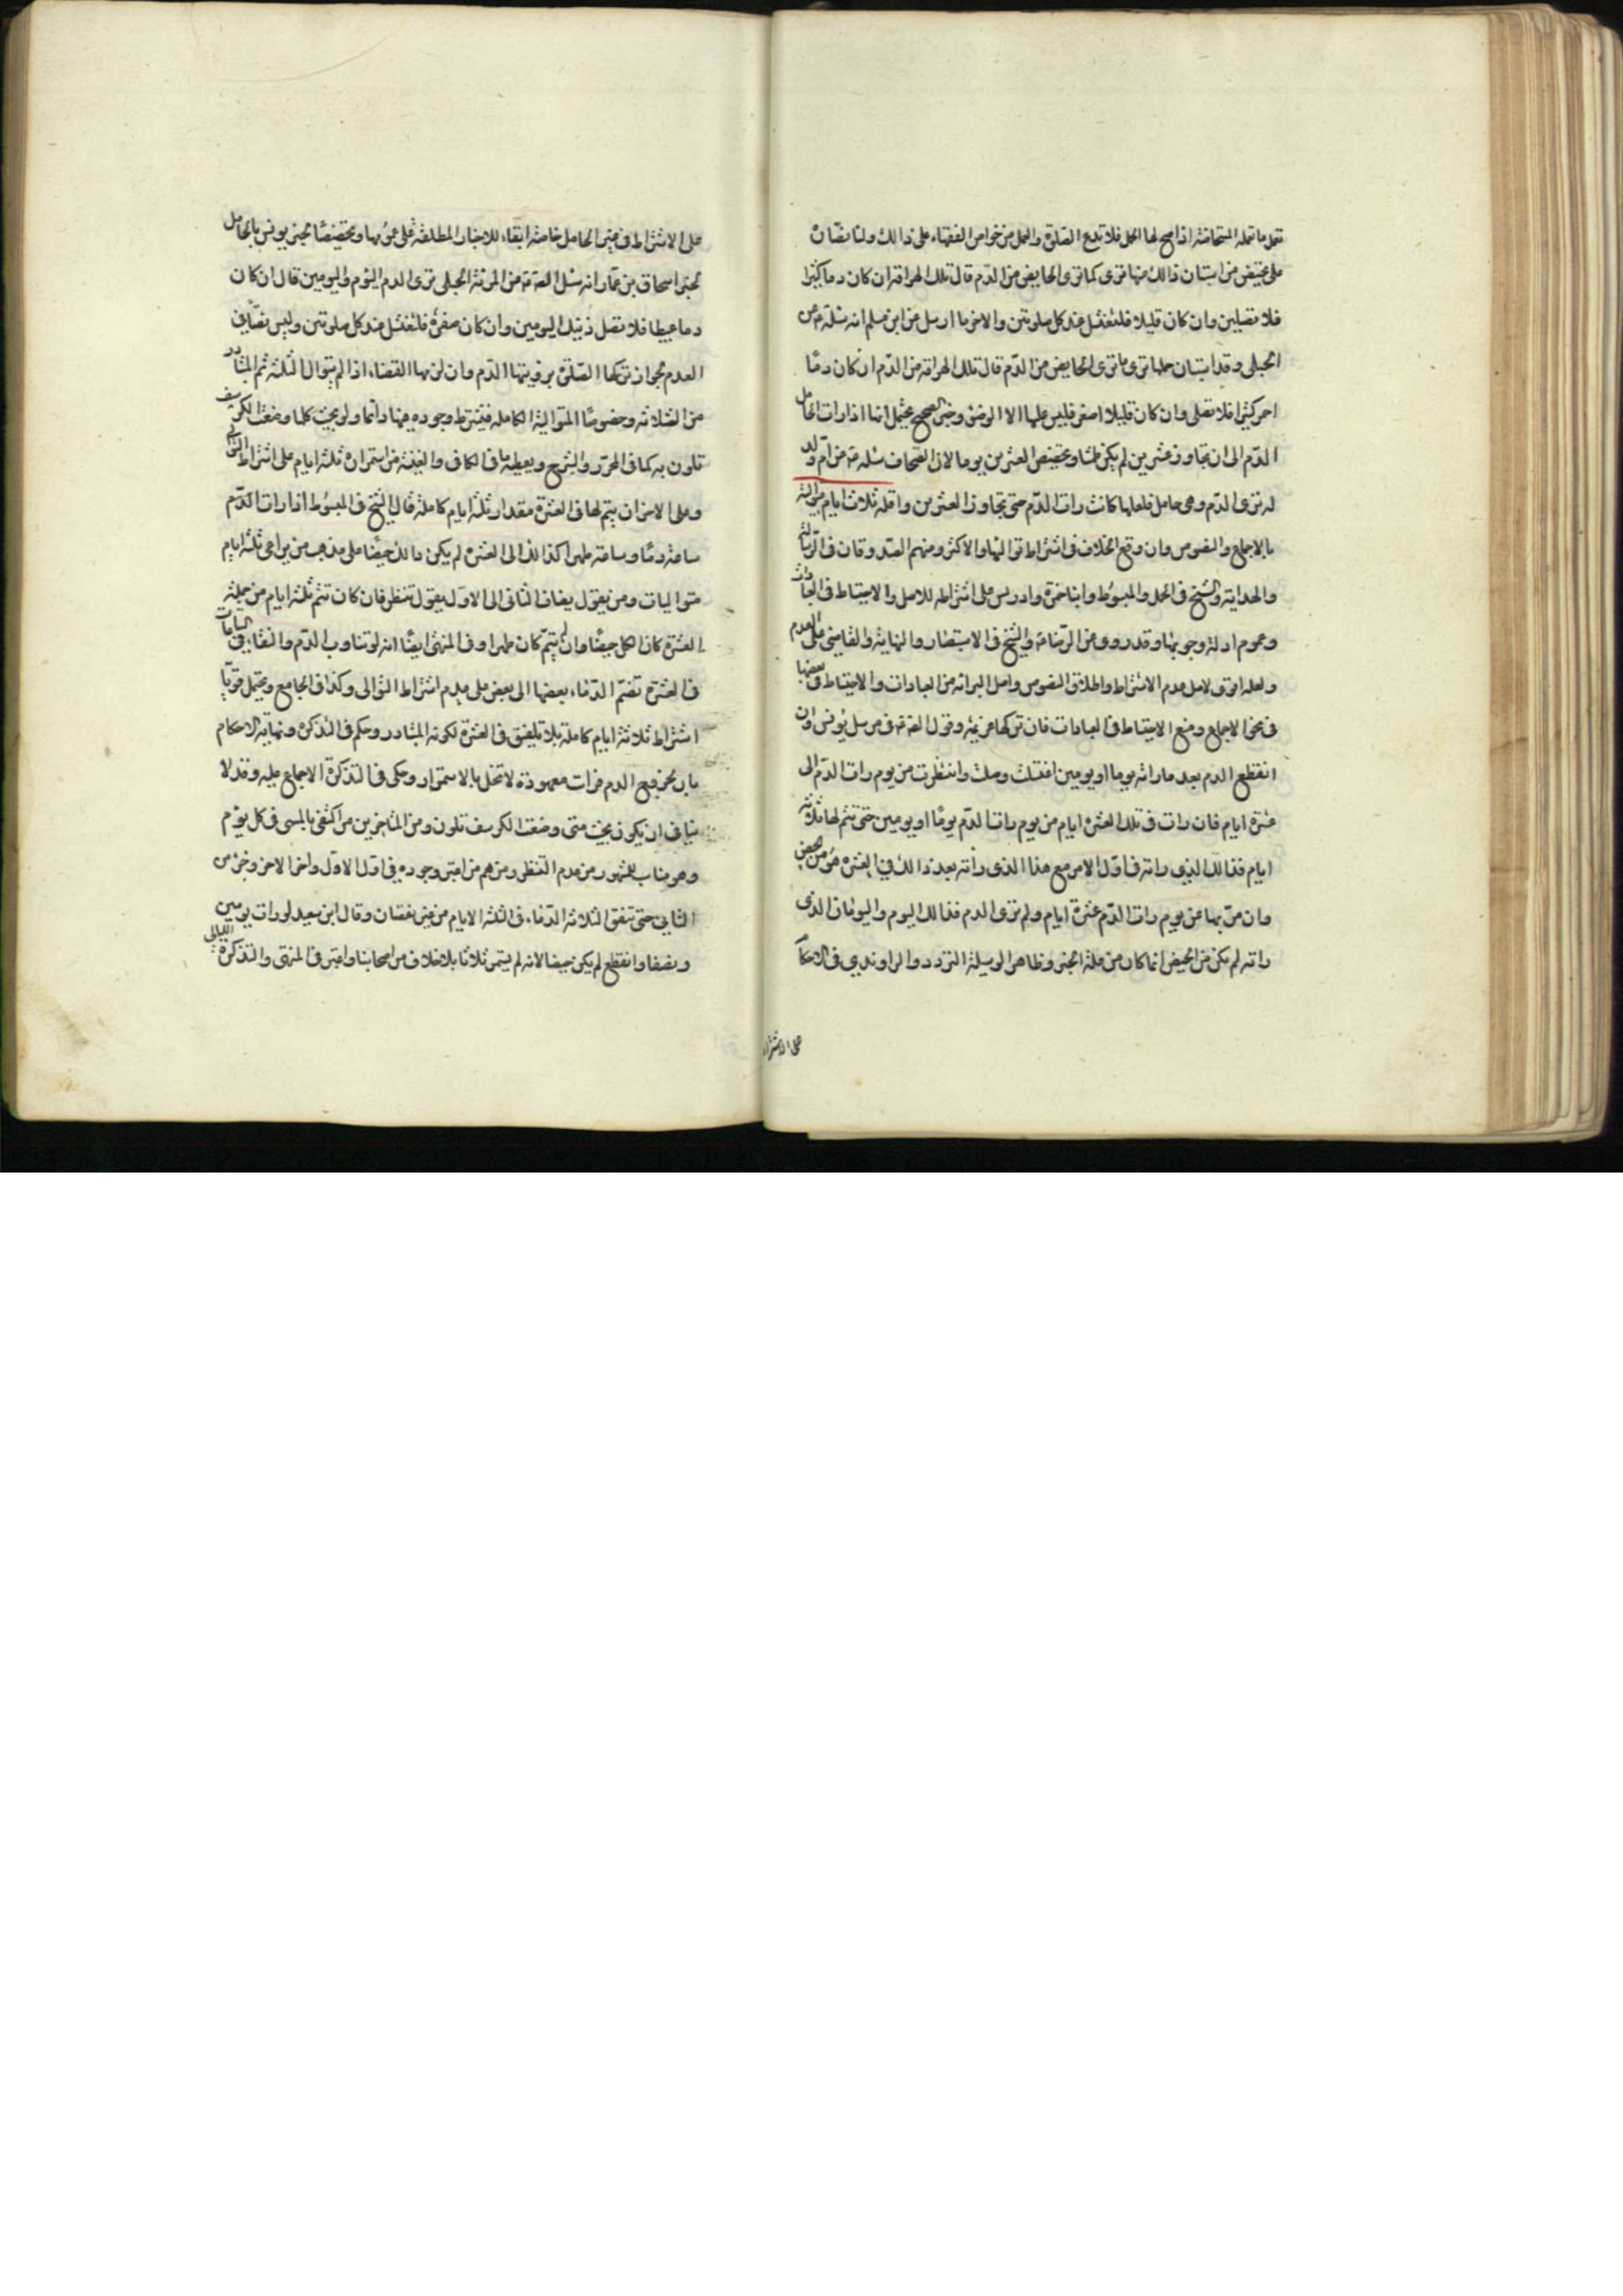 تعمل ما تعمله المستحاضة اذا صح لها الحمل فلا تدع الصلوة والعمل من خواص الفقهاء على ذالك ولنا نصان
على تحيض من استبان ذالك منها ترى كما ترى الحايض من الدم قال تلك الهراقة ان كان دما كثيرا
فلا تصلين وان كان قليلا فلتغتسل عند كل صلوتين والاخر ما ارسل عن ابن مسلم انه سئله ع عن
الحبلى وقد استبان حملها ترى ما ترى الحايض من الدم قال تلك الهراقة من الدم ان كان دمًا
احمر كثيرا فلا تصلى وان كان قليلا اصفر فليس عليها الا الوضوء وخبر الصحيح يحتمل انها اذا رات الحامل
الدم الى ان تجاوز عشرين لم يكن طمثا وتحيض العشرين يوما لان الصحاف سئله ع عن ام ولد
له ترى الدم وهى حامل فلعلها كانت رات الدم حتى تجاوز العشرين واقله ثلاث ايام متوالية
بالاجماع والنصوص وان وقع الخلاف فى اشتراط تواليها والاكثر ومنهم الصدوقان فى الرسالة
والهداية والشيخ فى الجمل والمبسوط وابنا حمزة وادريس على اشتراطه للاصل والاحتياط فى العبادات
وعموم ادلة وجوبها وقد روى عن الرضا ع والشيخ فى الاستبصار والنهاية والقاضى على عدم
ولعله اقوى لاصل عدم الاشتراط واطلاق النصوص واصل البرائة من العبادات والاحتياط فى بعضها
فى نحو الاجماع ومنع الاحتياط فى العبادات فان تركها عزيمة وقول الصادق ع فى مرسل يونس وان
انقطع الدم بعد ما راته يوما او يومين اغتسلت وصلت وانتظرت من يوم رات الدم الى
عشرة ايام فان رات فى تلك العشرة ايام من يوم رات الدم يومًا او يومين حتى تتم لها ثلاثة
ايام فذالك الذى راته فى اول الامر مع هذا الذى راته بعد ذالك فى العشرة هو من الحيض
وان مر بها من يوم رات الدم عشرة ايام ولم تر الدم فذالك اليوم واليومان الذى
راته لم يكن من الحيض انما كان من علة الخبر وظاهر الوسيلة التردد والراوندى فى الاحكام
على الاشتراط
على الاشتراط فى غير الحامل خاصة ابقاء للاخبار المطلقة على عمومها وتخصيصًا لخبر يونس بالحامل
لخبر اسحاق بن عمار انه سئل الصادق ع عن المرئة الحبلى ترى الدم اليوم واليومين قال ان كان
دما عبيطا فلا تصل ذينك اليومين وان كان صفرة فلتغتسل عند كل صلوتين وليس نصا فى
العدم لجواز تركها الصلوة برؤيتها الدم وان لزمها القضاء اذا لم يتوال الثلثة ثم المتبادر
من الثلاثه وخصوصًا المتوالية الكامله فيشترط وجوده فيها دائما ولو بحيث كلما وضعت الكرسف
تلون به كما فى المحرر والشرح ويعطيه ما فى الكافى والغنية من استمراره ثلثة ايام على اشتراط التوالى
وعلى الاخر ان يتم لها فى العشرة مقدار ثلثة ايام كاملة قال الشيخ فى المبسوط اذا رات الدم
ساعة دمًا وساعة طهرا كذالك الى العشرة لم يكن ذالك حيضًا على مذهب من يراعى ثلثة ايام
متواليات ومن يقول يضاف الثانى الى الاول يقول تنظر فان كان تتم ثلثة ايام من جملة
العشرة كان الكل حيضًا وان لم يتم كان طهرا وفى المنتهى ايضًا انه لو تناوب الدم والنقاء فى الساعات
فى العشرة تضم الدماء بعضها الى بعض على عدم اشتراط التوالى وكذا فى الجامع ويحتمل قويّا
اشتراط ثلاثة ايام كاملة بلا تلفيق فى العشرة لكونه المتبادر وحكم فى التذكرة ونهاية الاحكام
بان لخروج الدم فترات معهودة لا تخل بالاستمرار وحكى فى التذكرة الاجماع عليه وقد لا
ينافى ان يكون بحيث متى وضعت الكرسف تلون ومن المتاخرين من اكتفى بالمسمى فى كل يوم
وهو مناسب للمشهور من عدم التنظر ومنهم من اعتبر وجوده فى اول الاول واخر الاخر وجزء من
الثانى حتى تتفق الثلاثة الدماء فى الثلثة الايام من غير نقصان وقال ابن سعيد لو رات يومين
ونصفا وانقطع لم يكن حيضا لانه لم يستمر ثلاثا بلا خلاف من اصحابنا واعتبر فى المنتهى والتذكرة الليالى